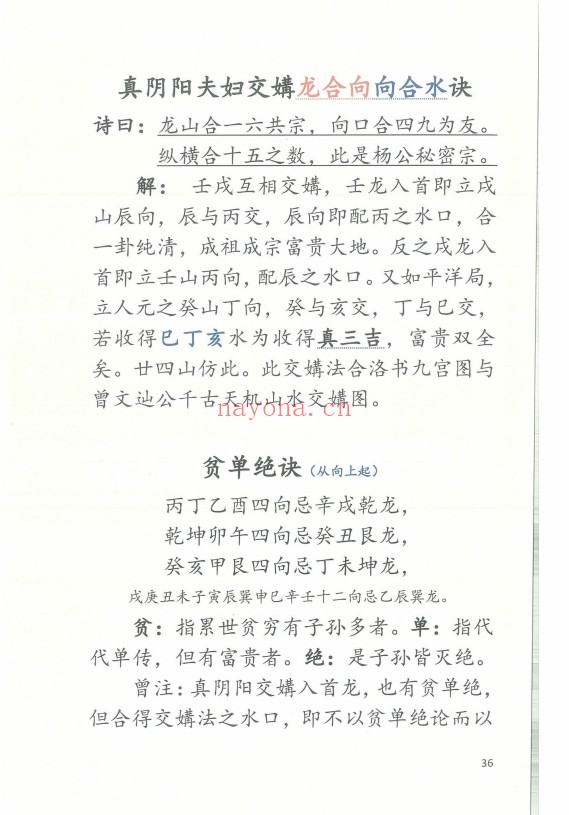 真阴阳夫妇交媾龙合向向合水诀
诗曰：龙山合一六共宗，向口合四九为友。
纵横合十五之数，此是杨公秘密宗。
解：壬戌互相交媾，壬龙入首即立戌
山辰向，辰与丙交，辰向即配丙之水口，合
一卦纯清，成祖成宗富贵大地。反之戌龙入
首即立壬山丙向，配辰之水口。又如平洋局，
立人元之癸山丁向，癸与亥交，丁与巳交，
若收得巳丁亥水为收得真三吉，富贵双全
矣。廿四山仿此。此交媾法合洛书九宫图与
曾文辿公千古天机山水交媾图。
nayona.cn
贫单绝诀（从向上起）
丙丁乙酉四向忌辛戌乾龙，
乾坤卯午四向忌癸丑艮龙，
癸亥甲艮四向忌丁未坤龙，
戌庚丑未子寅辰巽申巳辛壬十二向忌乙辰巽龙。
贫：指累世贫穷有子孙多者。单：指代
代单传，但有富贵者。绝：是子孙皆灭绝。
曾注：真阴阳交媾入首龙，也有贫单绝，
但合得交媾法之水口，即不以贫单绝论而以
36